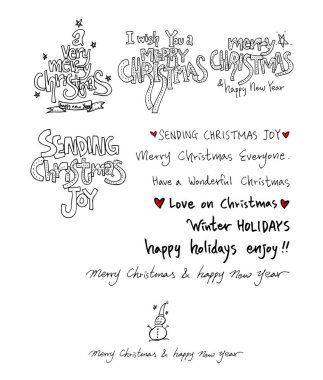 a
very
merry
christmas
happy new year
I wish You a
MERRY
CHRISTMAS
merry
CHRISTMAS
& happy New Year
SENDING
Christmas
JOY
SENDING CHRISTMAS JOY
Merry Christmas Everyone.
Have a Wonderful Christmas
Love on Christmas
Winter HOLIDAYS
happy holidays enjoy!!
Merry Christmas & happy New Year
Merry Christmas & happy New Year